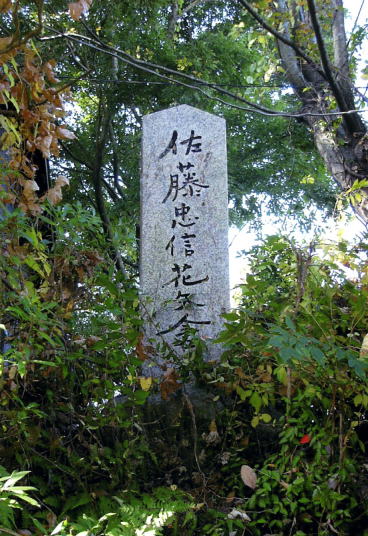 佐藤忠信花矢倉